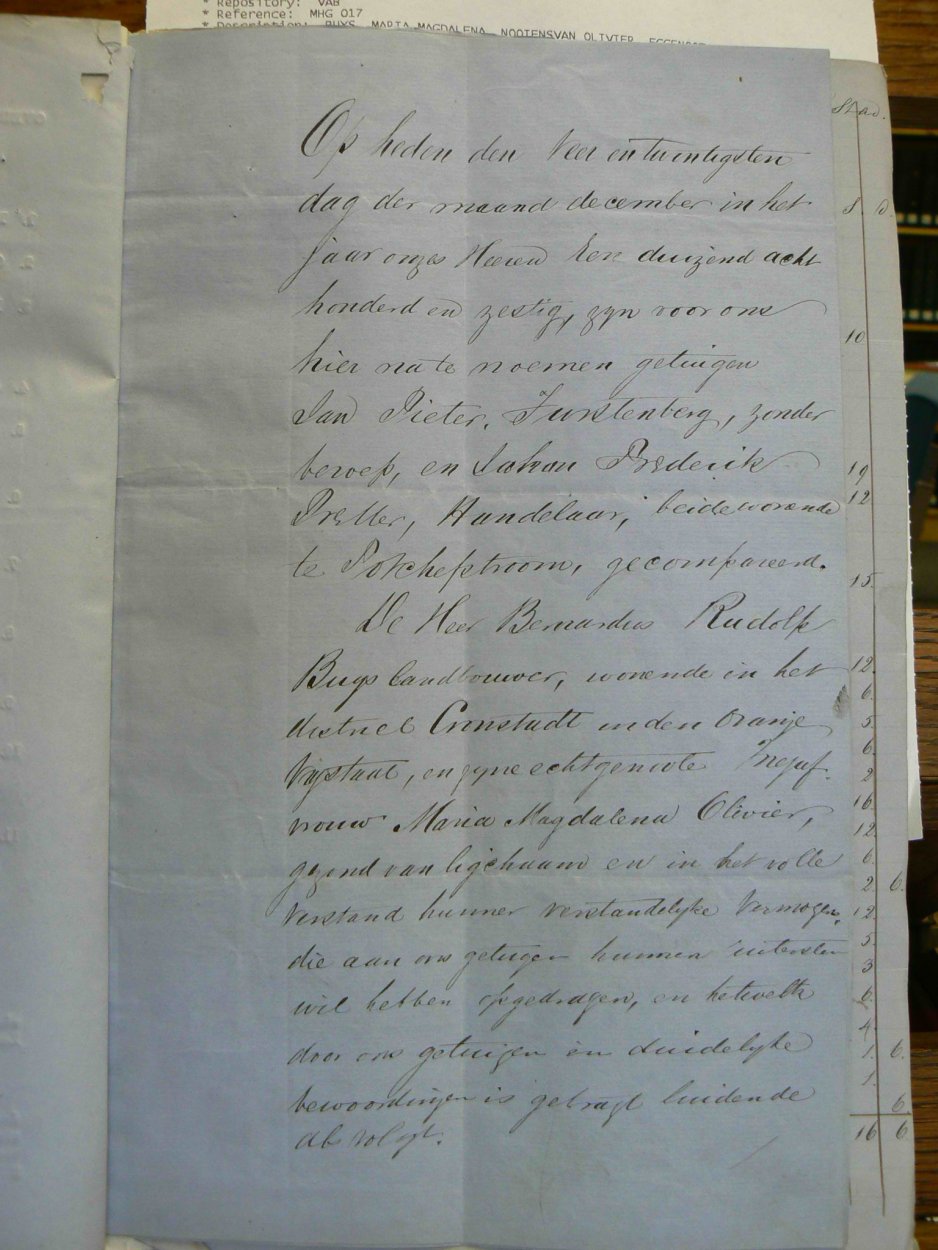 * Repository: VAB
* Reference: MHG 017
* Description: BUYS, MARIA MAGDALENA. NOOIENSVAN OLIVIER. EGGENOOT
Op heden den Vier en twintigsten
dag der maand december in het
jaar onzes Heeren Een duizend acht
honderd en zestig, zyn voor ons
hier na te noemen getuigen
Jan Pieter, Furstenberg, zonder
beroep, en Johan Frederik
Preller, Handelaar, beide wonende
te Potchefstroom, gecompareerd.
De Heer Bernardus Rudolf
Buys Landbouwer, wonende in het
district Cronstadt in den Oranje
Vrystaat, en zyne echtgenoote Mejuf-
vrouw Maria Magdalena Olivier,
gezond van ligchaam en in het volle
Verstand hunner verstandelyke Vermogen,
die aan ons getuigen hunnen uitersten
wil hebben opgedragen, en hetwelk
door ons getuigen in duidelyke
bewoordingen is gebragt luidende
als volgt.
8. 0.
10
19
12
15
12.
6.
5
6.
2
16.
12.
6.
2. 6.
12.
5
3
6.
4.
1. 6.
1
6.
16 6.